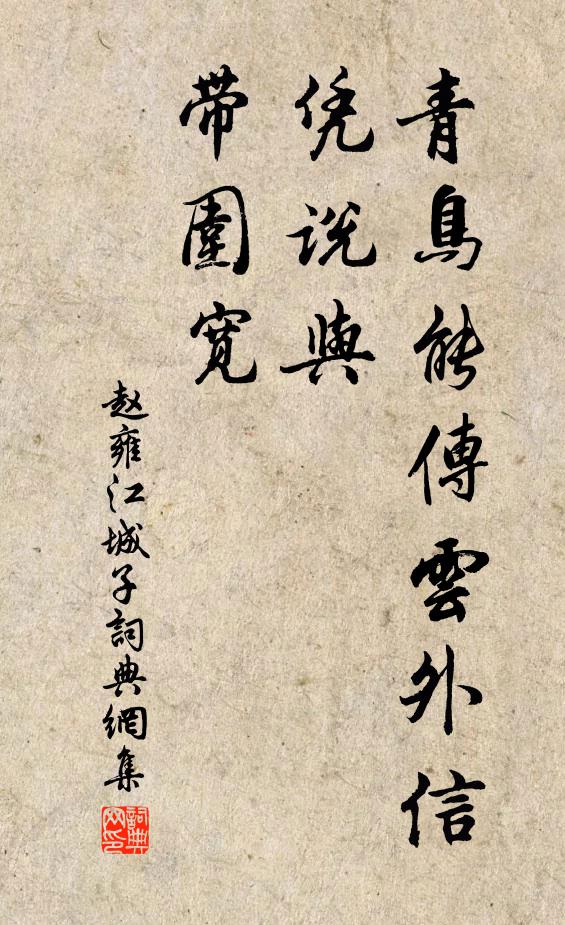 青鳥能傳雲外信
凭説與
帶圍寬
赵雍江城子詞典網集
詞典网印